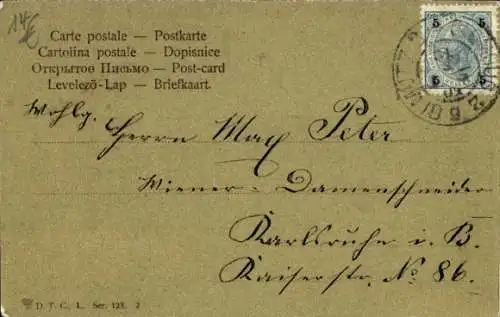 14 €
Carte postale — Postkarte
Cartolina postale — Dopisnice
Открытое Письмо — Post-card
Levelező-Lap — Briefkaart.
5 5
5 5
Wohlg.
Herrn Max Peter
Wiener-Damenschneider
Karlsruhe i. B.
Kaiserstr. No 86.
D. T. C., L. Ser. 123. 2